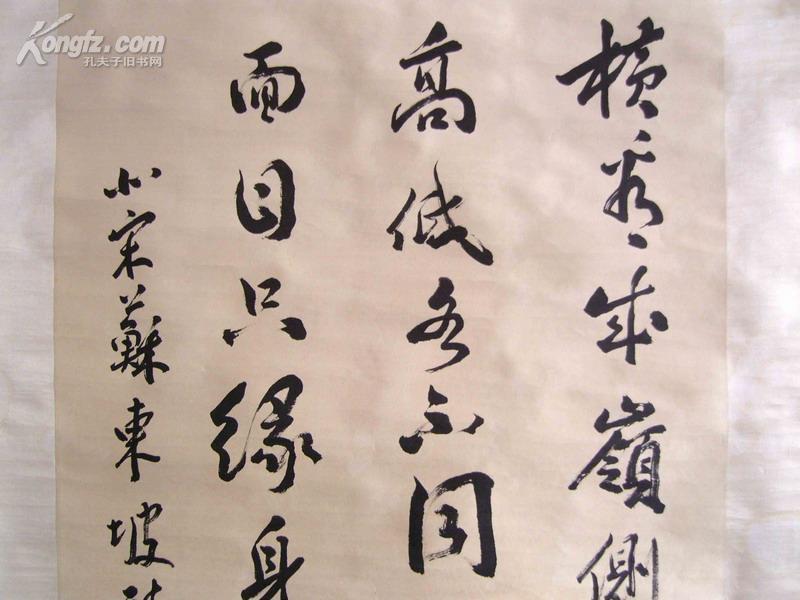 横看成嶺側
高低各不同
面目只緣身
宋蘇東坡
Kongfz.com
孔夫子旧书网